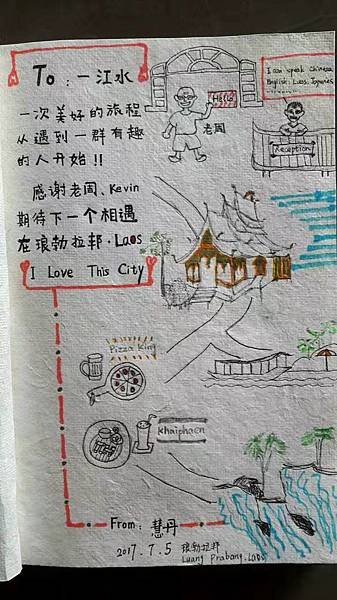 To：一江水
一次美好的旅程
从遇到一群有趣
的人开始!!
感谢老周、Kevin
期待下一个相遇
在琅勃拉邦·Laos
I Love This City
Hello
老周
I can speak Chinese
English. Laos. Japanese
Reception
Pizza King
Khaiphaen
From：慧丹
2017.7.5 琅勃拉邦
Luang Prabang. Laos